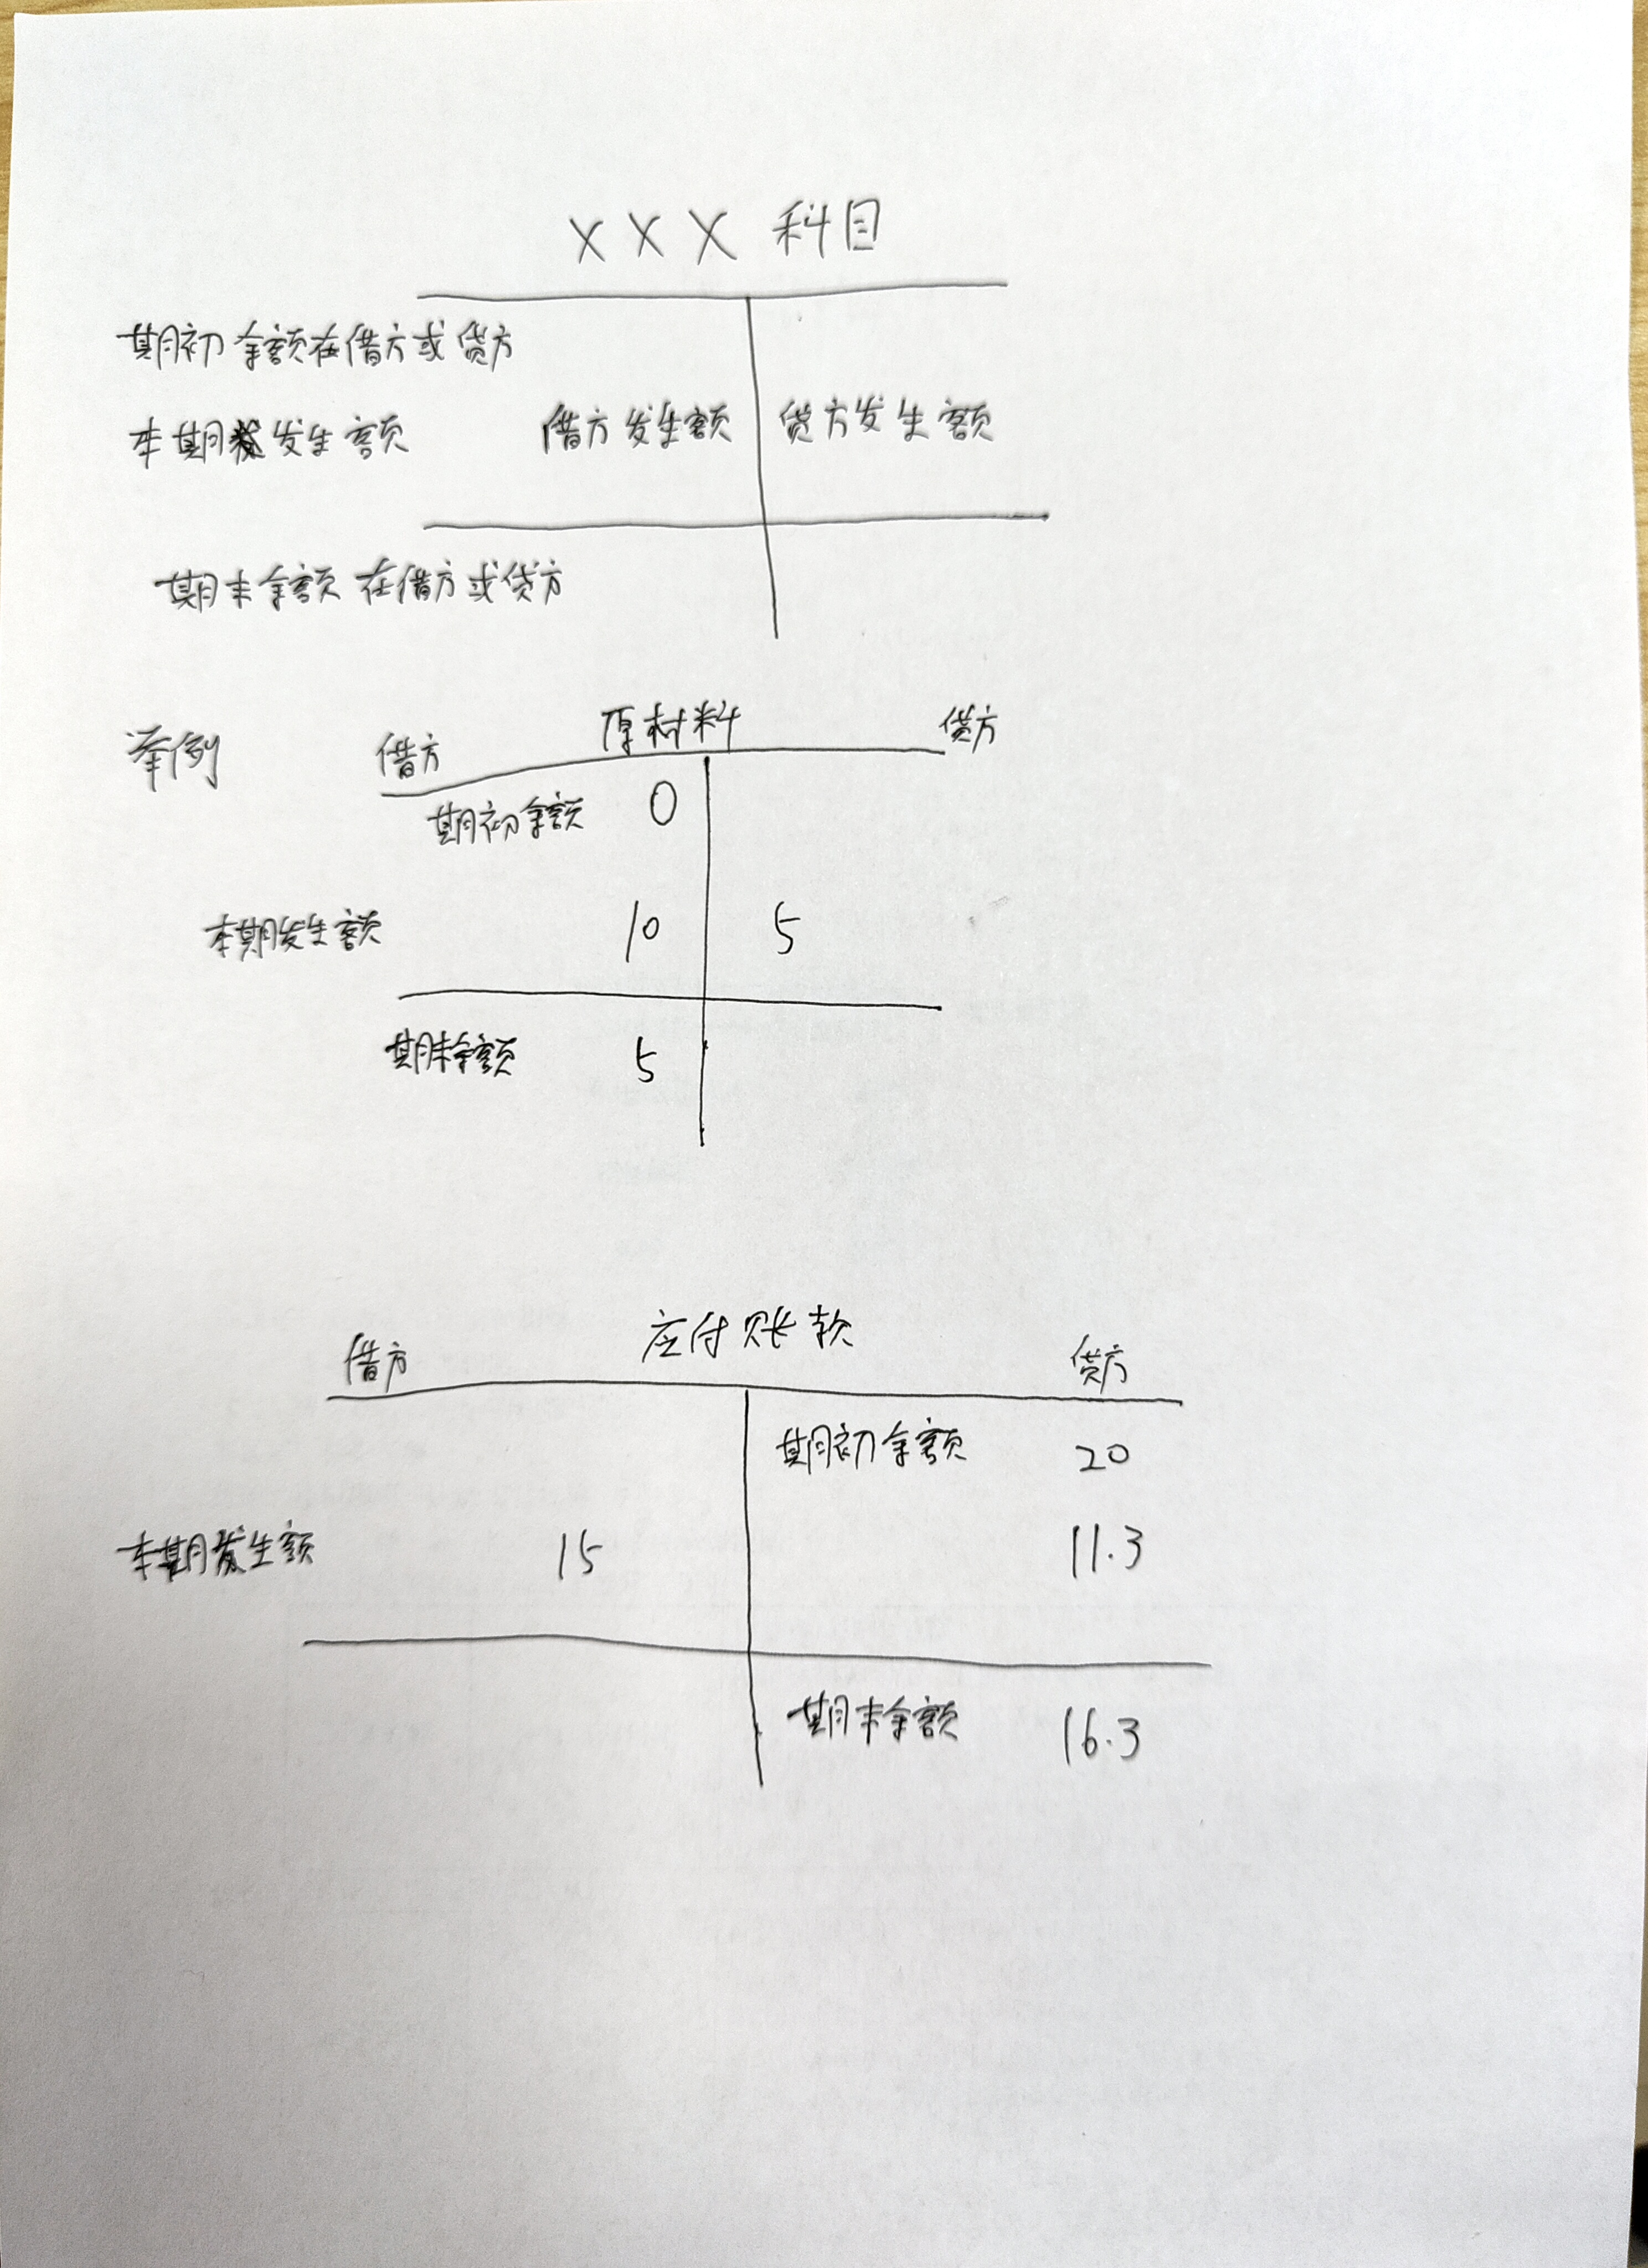 XXX 科目
期初余额在借方或贷方
本期发生额 借方发生额 贷方发生额
期末余额在借方或贷方
举例 借方 原材料 贷方
期初余额 0
本期发生额 10 5
期末余额 5
借方 应付账款 贷方
期初余额 20
本期发生额 15 11.3
期末余额 16.3